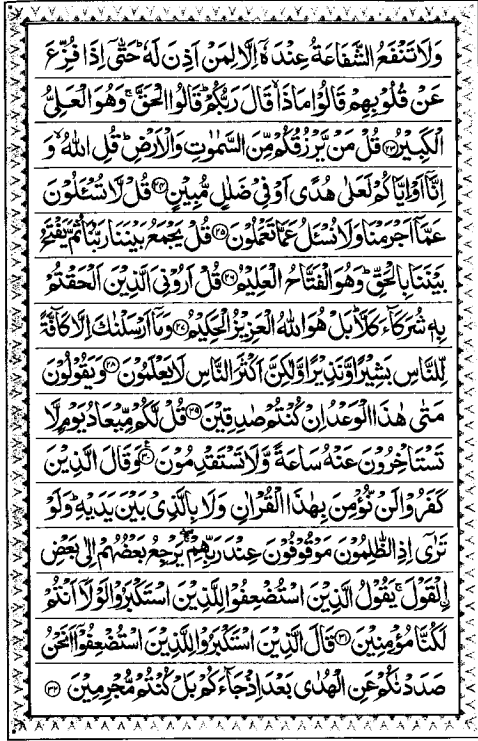 وَلَا تَنْفَعُ الشَّفَاعَةُ عِنْدَهٗۤ اِلَّا لِمَنْ اَذِنَ لَهٗ ؕ حَتّٰۤى اِذَا فُزِّعَ
عَنْ قُلُوْبِهِمْ قَالُوْا مَاذَا ۙ قَالَ رَبُّكُمْ ؕ قَالُوا الْحَقَّ ۚ وَهُوَ الْعَلِىُّ
الْكَبِيْرُ ﴿۲۳﴾ قُلْ مَنْ يَّرْزُقُكُمْ مِّنَ السَّمٰوٰتِ وَالْاَرْضِ ؕ قُلِ اللّٰهُ ۙ وَ
اِنَّاۤ اَوْ اِيَّاكُمْ لَعَلٰى هُدًى اَوْ فِىْ ضَلٰلٍ مُّبِيْنٍ ﴿۲۴﴾ قُلْ لَّا تُسْئَلُوْنَ
عَمَّاۤ اَجْرَمْنَا وَلَا نُسْئَلُ عَمَّا تَعْمَلُوْنَ ﴿۲۵﴾ قُلْ يَجْمَعُ بَيْنَنَا رَبُّنَا ثُمَّ يَفْتَحُ
بَيْنَنَا بِالْحَقِّ ؕ وَهُوَ الْفَتَّاحُ الْعَلِيْمُ ﴿۲۶﴾ قُلْ اَرُوْنِىَ الَّذِيْنَ اَلْحَقْتُمْ
بِهٖ شُرَكَآءَ كَلَّا ؕ بَلْ هُوَ اللّٰهُ الْعَزِيْزُ الْحَكِيْمُ ﴿۲۷﴾ وَمَاۤ اَرْسَلْنٰكَ اِلَّا كَآفَّةً
لِّلنَّاسِ بَشِيْرًا وَّنَذِيْرًا وَّلٰكِنَّ اَكْثَرَ النَّاسِ لَا يَعْلَمُوْنَ ﴿۲۸﴾ وَيَقُوْلُوْنَ
مَتٰى هٰذَا الْوَعْدُ اِنْ كُنْتُمْ صٰدِقِيْنَ ﴿۲۹﴾ قُلْ لَّكُمْ مِّيْعَادُ يَوْمٍ لَّا
تَسْتَاْخِرُوْنَ عَنْهُ سَاعَةً وَّلَا تَسْتَقْدِمُوْنَ ﴿۳۰﴾ وَقَالَ الَّذِيْنَ
كَفَرُوْا لَنْ نُّؤْمِنَ بِهٰذَا الْقُرْاٰنِ وَلَا بِالَّذِىْ بَيْنَ يَدَيْهِ ؕ وَلَوْ
تَرٰۤى اِذِ الظّٰلِمُوْنَ مَوْقُوْفُوْنَ عِنْدَ رَبِّهِمْ ۖ يَرْجِعُ بَعْضُهُمْ اِلٰى بَعْضِ
ِۨالْقَوْلَ ۚ يَقُوْلُ الَّذِيْنَ اسْتُضْعِفُوْا لِلَّذِيْنَ اسْتَكْبَرُوْا لَوْلَاۤ اَنْتُمْ
لَكُنَّا مُؤْمِنِيْنَ ﴿۳۱﴾ قَالَ الَّذِيْنَ اسْتَكْبَرُوْا لِلَّذِيْنَ اسْتُضْعِفُوْۤا اَنَحْنُ
صَدَدْنٰكُمْ عَنِ الْهُدٰى بَعْدَ اِذْ جَآءَكُمْ بَلْ كُنْتُمْ مُّجْرِمِيْنَ ﴿۳۲﴾